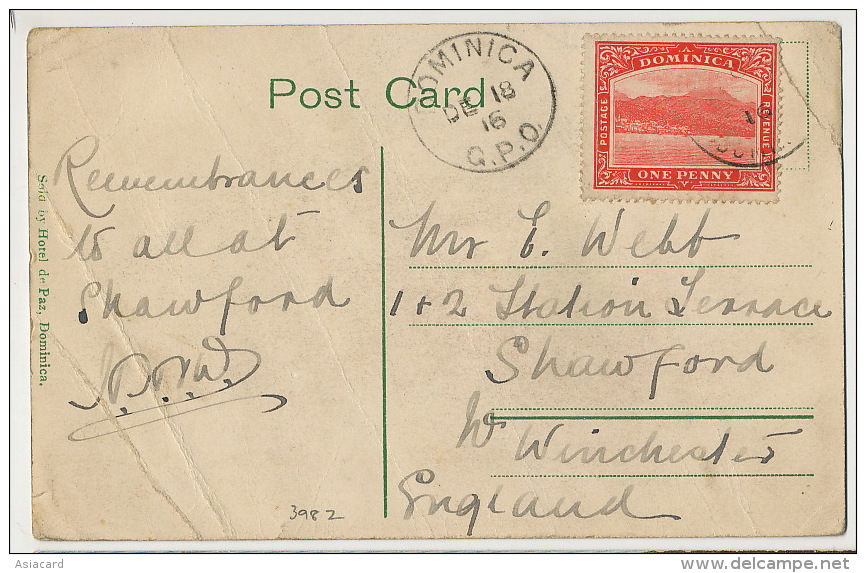 Post Card
DOMINICA
DE 18
16
G.P.O.
DOMINICA
POSTAGE
REVENUE
ONE PENNY
Remembrances
to all at
Shawford
Mr E. Webb
1+2 Station Terrace
Shawford
Nr Winchester
England
Sold by Hotel de Paz, Dominica.
3982
Asiacard
www.delcampe.net